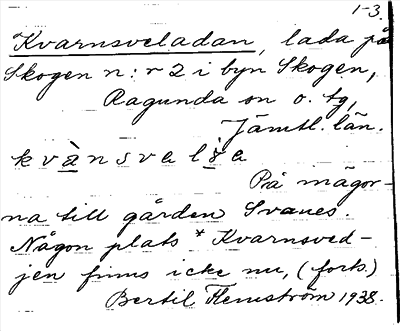 1-3.
Kvarnsveladan, lada på
Skogen n:r 2 i byn Skogen,
Ragunda sn o. tg,
Jämtl. län.
På mägor-
na till gården Svanes.
Någon plats * Kvarnsved-
jen finns icke nu, (forts.)
Bertil Flemström 1938.